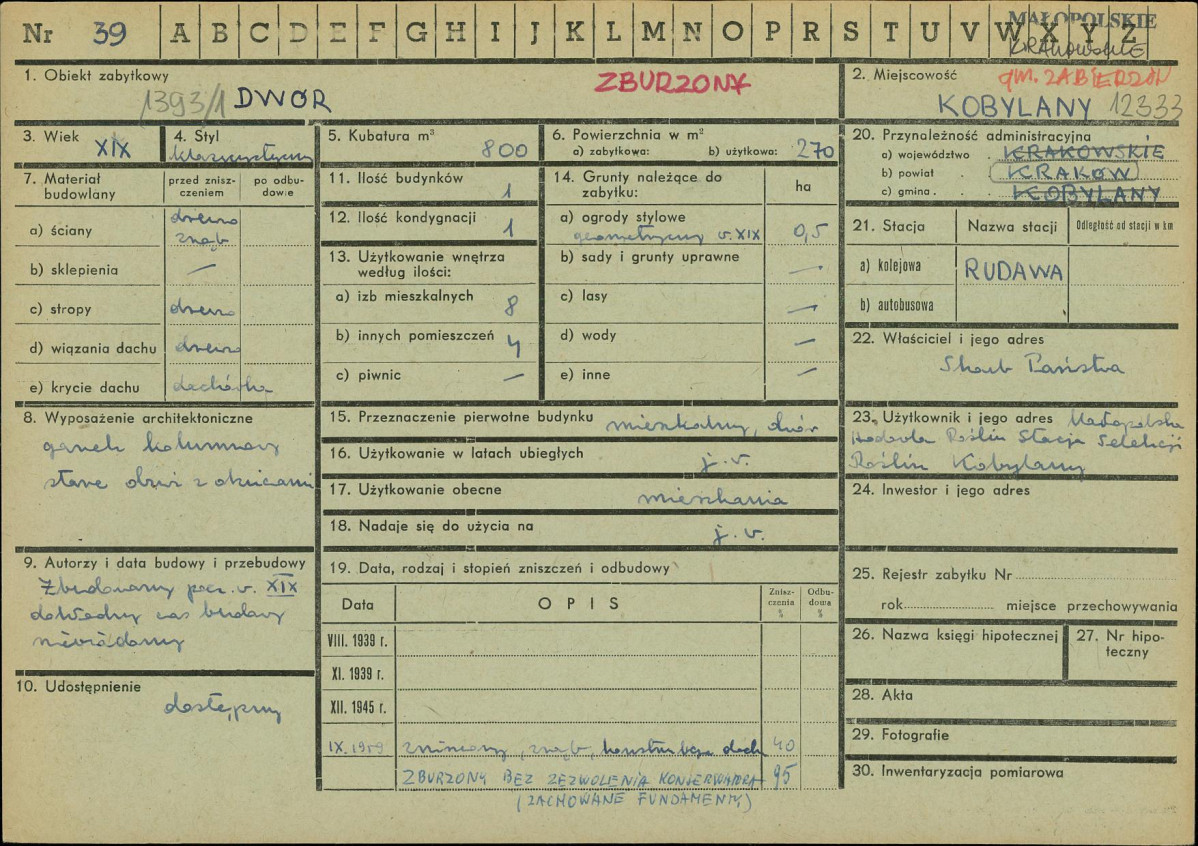 Nr 39 A B C D E F G H I J K L M N O P R S T U V W X Y Z
MAŁOPOLSKIE
KRAKOWSKIE
1. Obiekt zabytkowy
1393/1 DWÓR
ZBURZONY
2. Miejscowość gm. ZABIERZÓW
KOBYLANY 12333
3. Wiek XIX
4. Styl
klasycystyczny
5. Kubatura m³
800
6. Powierzchnia w m²
a) zabytkowa: b) użytkowa: 270
7. Materiał budowlany
przed zniszczeniem
po odbudowie
a) ściany
drewno
zrąb
b) sklepienia —
c) stropy drewno
d) wiązania dachu drewno
e) krycie dachu dachówka
8. Wyposażenie architektoniczne
ganek kolumnowy
stare drzwi z okuciami
9. Autorzy i data budowy i przebudowy
Zbudowany pocz. w. XIX
dokładny czas budowy
niewiadomy
10. Udostępnienie
dostępny
11. Ilość budynków 1
12. Ilość kondygnacji 1
13. Użytkowanie wnętrza
według ilości:
a) izb mieszkalnych 8
b) innych pomieszczeń 4
c) piwnic —
14. Grunty należące do
zabytku:
ha
a) ogrody stylowe
geometryczny w. XIX 0,5
b) sady i grunty uprawne —
c) lasy —
d) wody —
e) inne —
15. Przeznaczenie pierwotne budynku mieszkalny, dwór
16. Użytkowanie w latach ubiegłych j. w.
17. Użytkowanie obecne mieszkania
18. Nadaje się do użycia na j. w.
19. Data, rodzaj i stopień zniszczeń i odbudowy
Data
OPIS
Zniszczenia %
Odbudowa %
VIII. 1939 r.
XI. 1939 r.
XII. 1945 r.
IX. 1959 zniszczony, zrąb, konstrukcja dach 40
ZBURZONY BEZ ZEZWOLENIA KONSERWATORA 95
(ZACHOWANE FUNDAMENTY)
20. Przynależność administracyjna
a) województwo . KRAKOWSKIE
b) powiat . KRAKÓW
c) gmina . . KOBYLANY
21. Stacja
Nazwa stacji
Odległość od stacji w km
a) kolejowa RUDAWA
b) autobusowa
22. Właściciel i jego adres
Skarb Państwa
23. Użytkownik i jego adres Małopolska
Hodowla Roślin Stacja Selekcji
Roślin Kobylany
24. Inwestor i jego adres
25. Rejestr zabytku Nr
rok miejsce przechowywania
26. Nazwa księgi hipotecznej
27. Nr hipoteczny
28. Akta
29. Fotografie
30. Inwentaryzacja pomiarowa